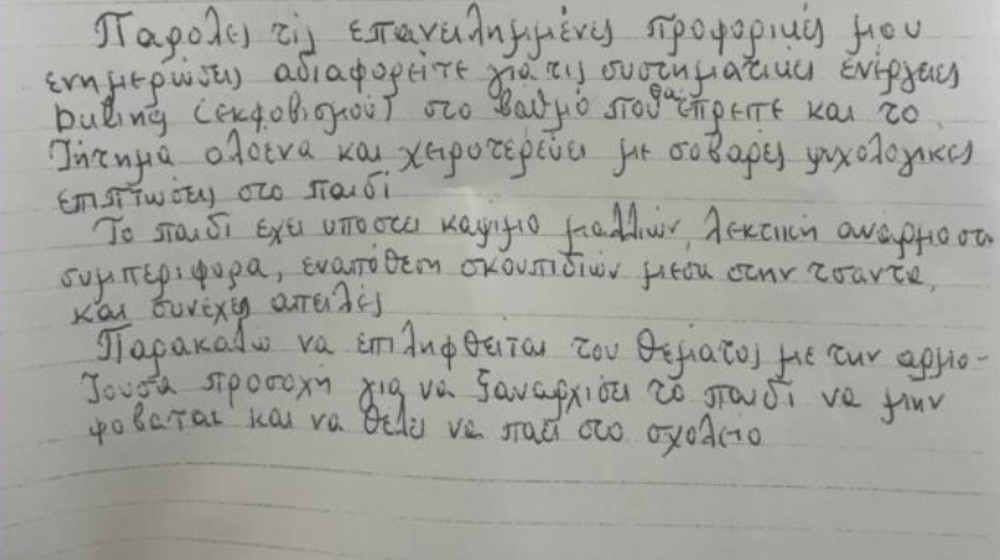 Παρολες τις επανειλημμένες προφορικές μου
ενημερώσεις αδιαφορείτε για τις συστηματικές ενέργειες
buling (εκφοβισμού) στο βαθμό που θα έπρεπε και το
ζήτημα ολοενα και χειροτερεύει με σοβαρές ψυχολογικες
επιπτώσεις στο παιδί
Το παιδί εχει υποστει καψιμο μαλλιών, λεκτική ανάρμοστη
συμπεριφορα, εναπόθεση σκουπιδιών μεσα στην τσαντα,
και συνέχεις απειλές
Παρακαλω να επιληφθειται του θέματος με την αρμο-
ζουσα προσοχή για να ξαναρχισει το παιδί να μην
φοβαται και να θελει να παει στο σχολειο